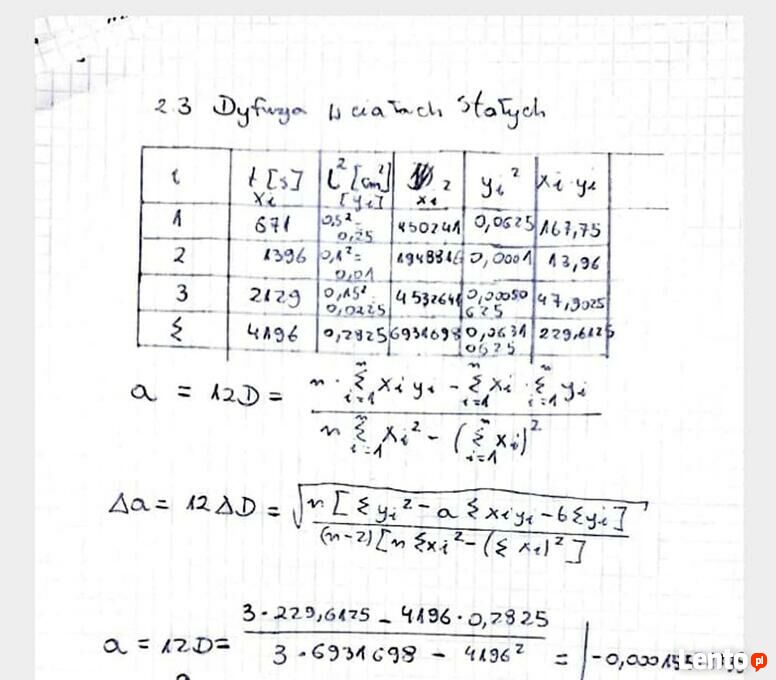 2.3 Dyfuzja w ciałach stałych
i t [s] xi l² [cm²] [yi] xi² yi² xi·yi
1 671 0,5²= 0,25 450241 0,0625 167,75
2 1396 0,1²= 0,01 1948816 0,0001 13,96
3 2129 0,15² 0,0225 4532641 0,00050625 47,9025
Σ 4196 0,2825 6931698 0,06310625 229,6125
a = 12D = n·Σxi yi - Σxi·Σyi / nΣxi² - (Σxi)²
Δa = 12ΔD = √ n[Σyi² - aΣxiyi - bΣyi] / (n-2)[nΣxi² - (Σxi)²]
a = 12D = 3·229,6125 - 4196·0,2825 / 3·6931698 - 4196² = |-0,00015
Lento.pl